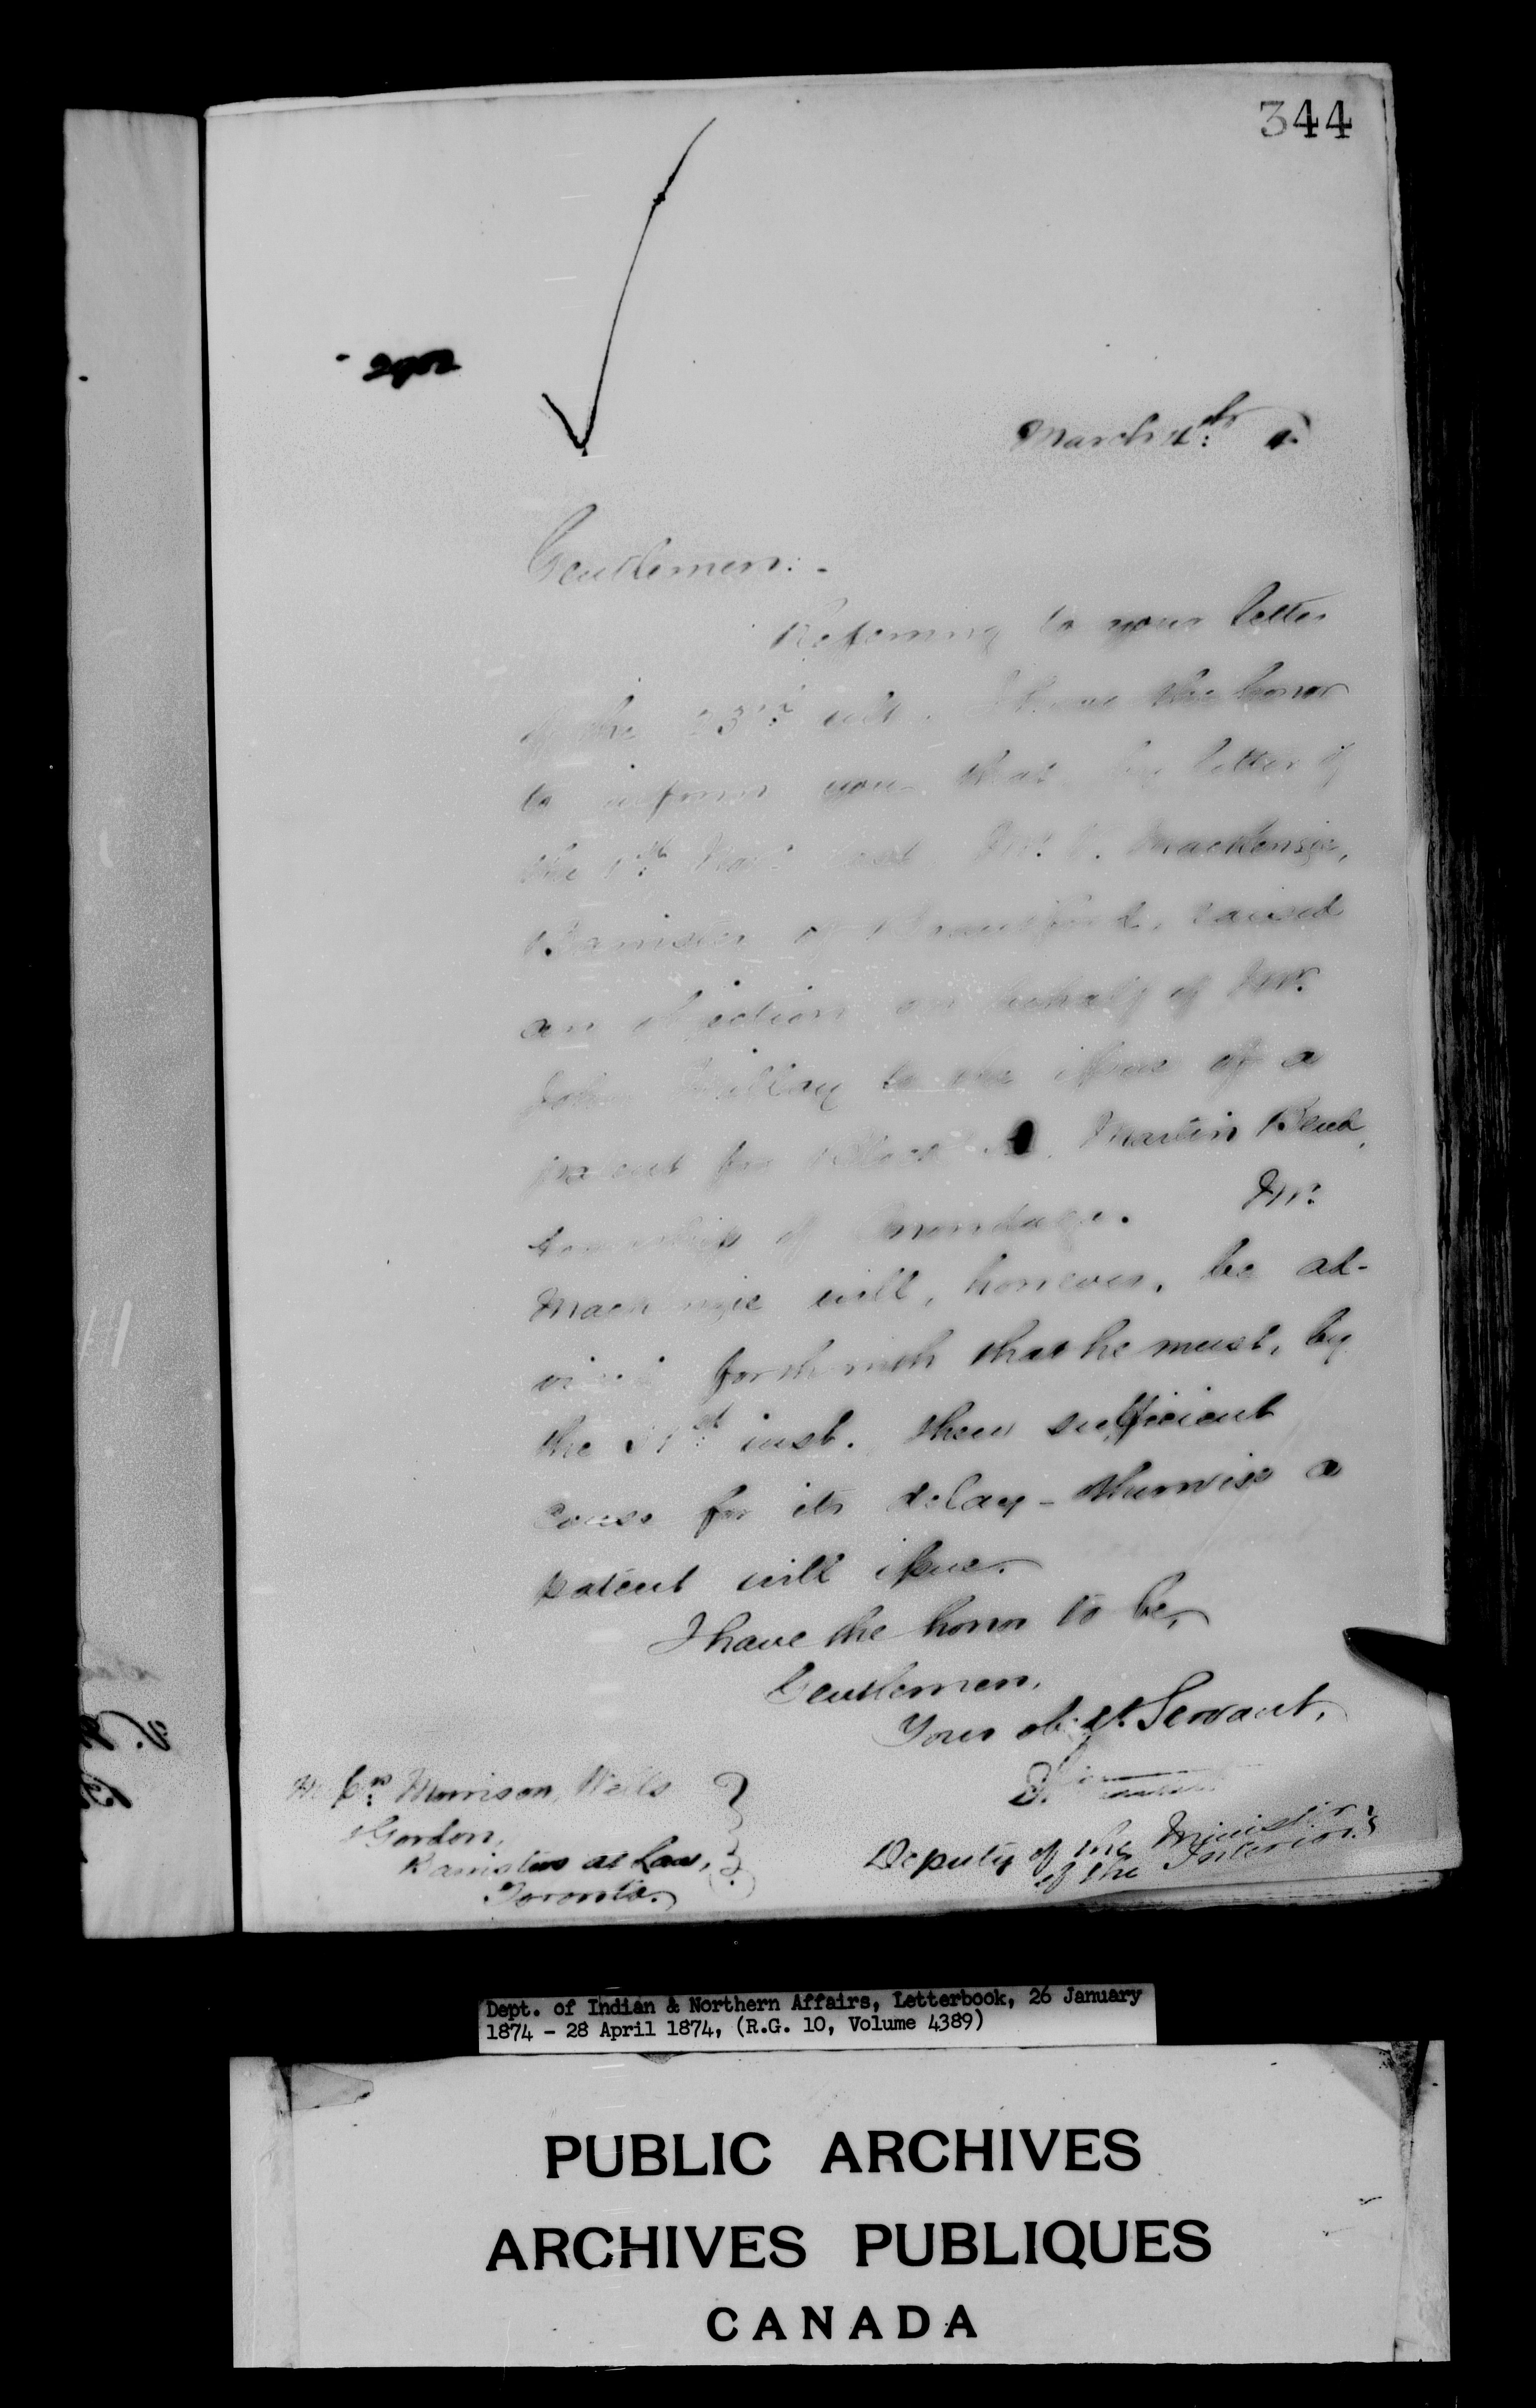 344
2902
March 4th:
Gentlemen:-
Referring to your letter
of the 23rd ult. I have the honor
to inform you that by letter of
the Nov: last, Mr. V. Mackenzie,
Barrister of Brantford, raised
an objection on behalf of Mr.
John to the issue of a
patent for Block Martin Bend,
township of Onondaga. Mr.
Mackenzie will, however, be ad-
vised forthwith that he must, by
the 31st: inst. shew sufficient
cause for its delay - otherwise a
patent will issue.
I have the honor to be,
Gentlemen,
Your obedt. Servant,
Deputy of the Minister
of the Interior.
Morrison, Wells
& Gordon,
Barristers at Law,
Toronto.
Dept. of Indian & Northern Affairs, Letterbook, 26 January
1874 - 28 April 1874, (R.G. 10, Volume 4389)
PUBLIC ARCHIVES
ARCHIVES PUBLIQUES
CANADA